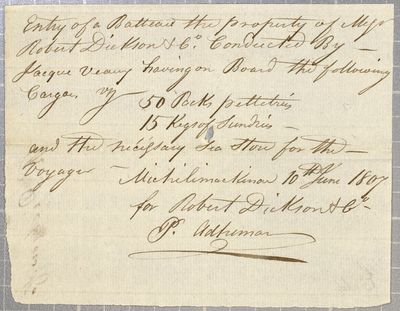 Entry of a Batteau the property of Mess
Robert Dickson & Co. Conducted By —
Jacque veaux having on Board the following
Cargo, viz
50 Packs peltetries
15 Kegs of Sundries —
and the necessary Sea Store for the —
Voyage
Michilimackinac 10th June 1807
for Robert Dickson & Co
P.